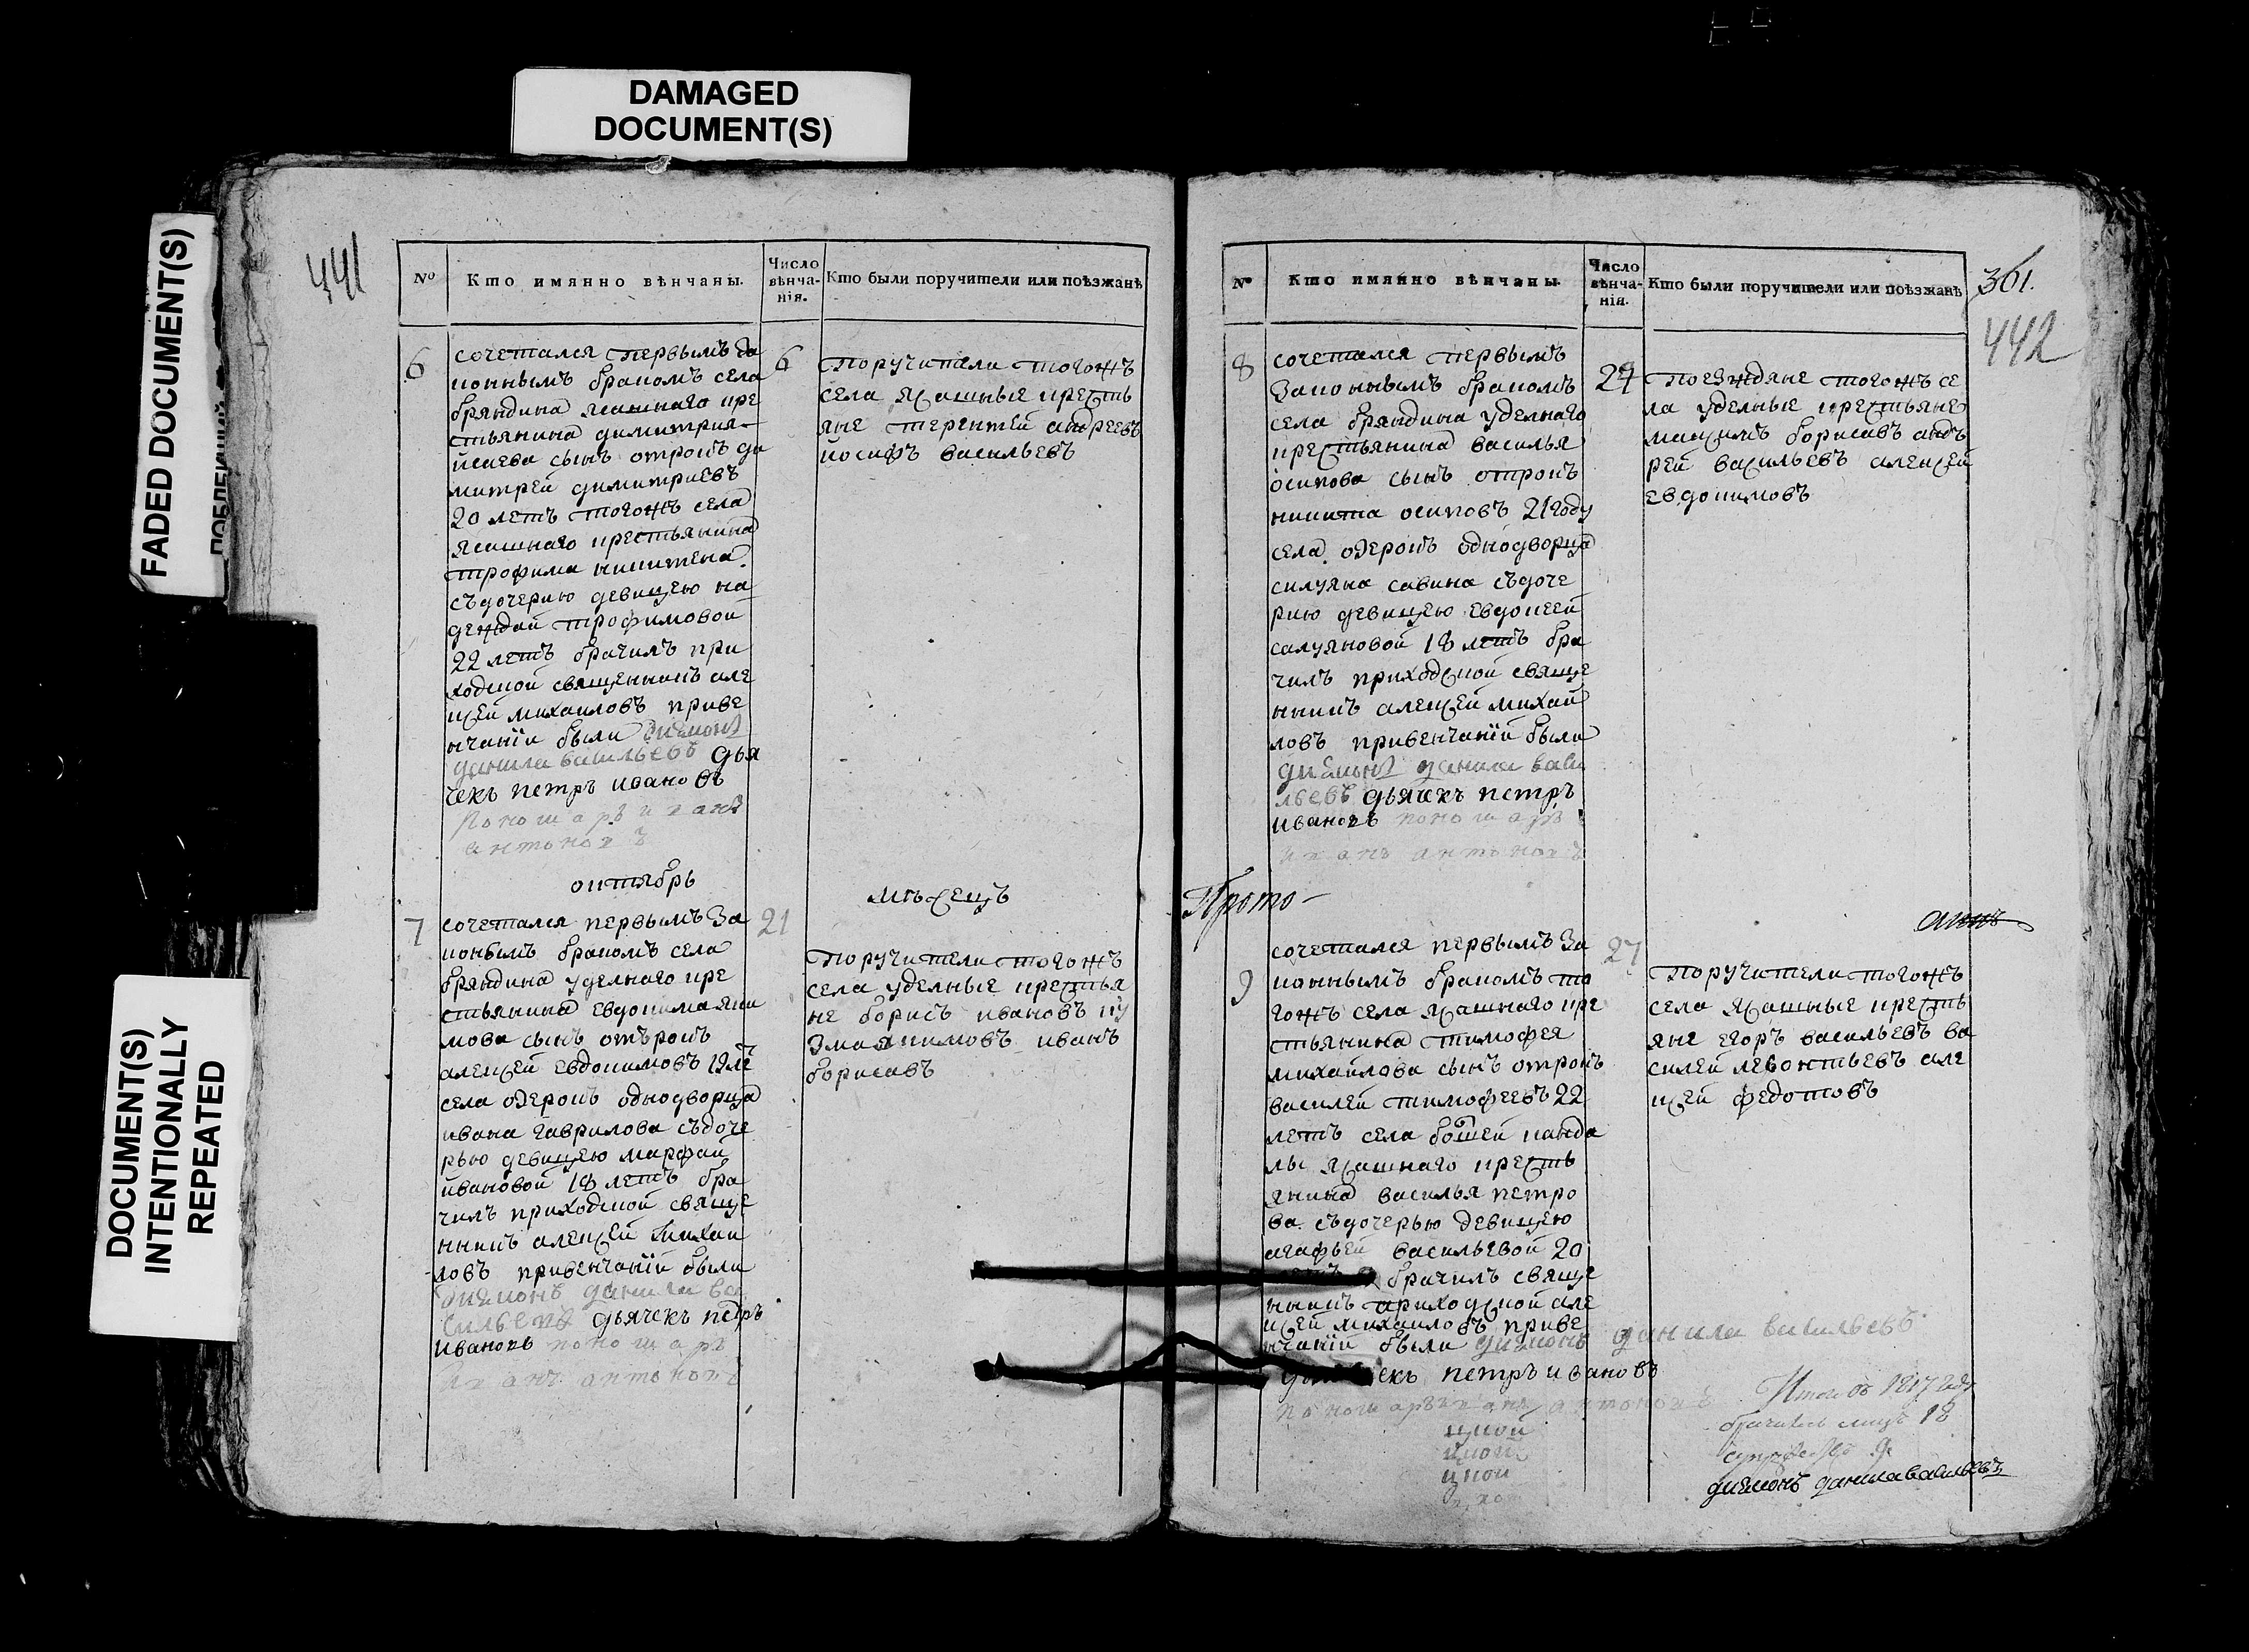 DAMAGED
DOCUMENT(S)
FADED DOCUMENT(S)
DOCUMENT(S)
INTENTIONALLY
REPEATED
441
№
Кто имянно вѣнчаны.
Число
вѣнча-
нія.
Кто были поручители или поѣзжанѣ
6
сочетался первымъ за
коннымъ бракомъ села
бряндина ясашнаго кре
стьянина димитрия
исаева сынъ отрокъ ди
митрей димитриевъ
20 летъ тогожъ села
ясашнаго крестьянина
трофима никитена
съдочерию девицею на
деждой трофимовой
22 летъ брачилъ при
ходской священникъ але
ксей михаиловъ приве
нчании были диаконъ
данила васильевъ дья
чекъ петръ ивановъ
пономаръ иванъ
антоновъ
6
поручители тогожъ
села ясашные кресть
яне терентей андреевъ
иосифъ васильевъ
октябрь
мѣсецъ
7
сочетался первымъ за
конымъ бракомъ села
бряндина уделнаго кре
стьянина евдокима яки
мова сынъ отърокъ
алексей евдокимовъ 19 ле
села озерокъ однодворца
ивана гаврилова съдоче
рью девицею марфаи
ивановой 18 летъ бра
чилъ приходской свяще
нникъ алексей михаи
ловъ привенчании были
диаконъ данила ва
сильевъ дьячекъ петръ
ивановъ пономаръ
иванъ антоновъ
21
поручители тогожъ
села уделные крестья
не борисъ ивановъ ку
зма якимовъ иванъ
борисавъ
361.
442
№
Кто имянно вѣнчаны.
Число
вѣнча-
нія.
Кто были поручители или поѣзжанѣ
8
сочетался первымъ
законнымъ бракомъ
села бряндина уделнаго
крестьянина василья
осипова сынъ отрокъ
никита осиповъ 21 году
села озерокъ однодворца
силуяна савина съдоче
рию девицею евдокеей
салуяновой 18 летъ бра
чилъ приходской свяще
нникъ алексей михаи
ловъ привенчании были
диаконъ данила васи
льевъ дьячекъ петръ
ивановъ пономаръ
иванъ антоновъ
24
поезждяне тогожъ се
ла уделные крестьяне
максимъ борисавъ андъ
рей васильевъ алексей
евдокимовъ
Прото-
9
сочетался первымъ за
коннымъ бракомъ то
гожъ села ясашнаго кре
стьянина тимофея
михаилова сынъ отрокъ
василей тимофеевъ 22
летъ села бошей канда
лы ясашнаго кресть
янина василья петро
ва съдочерью девицею
агафьей васильевой 20
брачилъ свяще
нникъ приходской але
ксей михаиловъ приве
нчании были диаконъ данила васильевъ
екъ петръ ивановъ
пономаръ иванъ антоновъ
27
поручители тогожъ
села ясашные кресть
яне егоръ васильевъ ва
силей левонтьевъ але
ксей федотовъ
Итого въ 1817 году
брачилось лицъ 18
диаконъ данила васильевъ